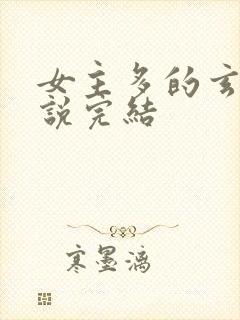 女主多的玄
說完結
寒墨漓